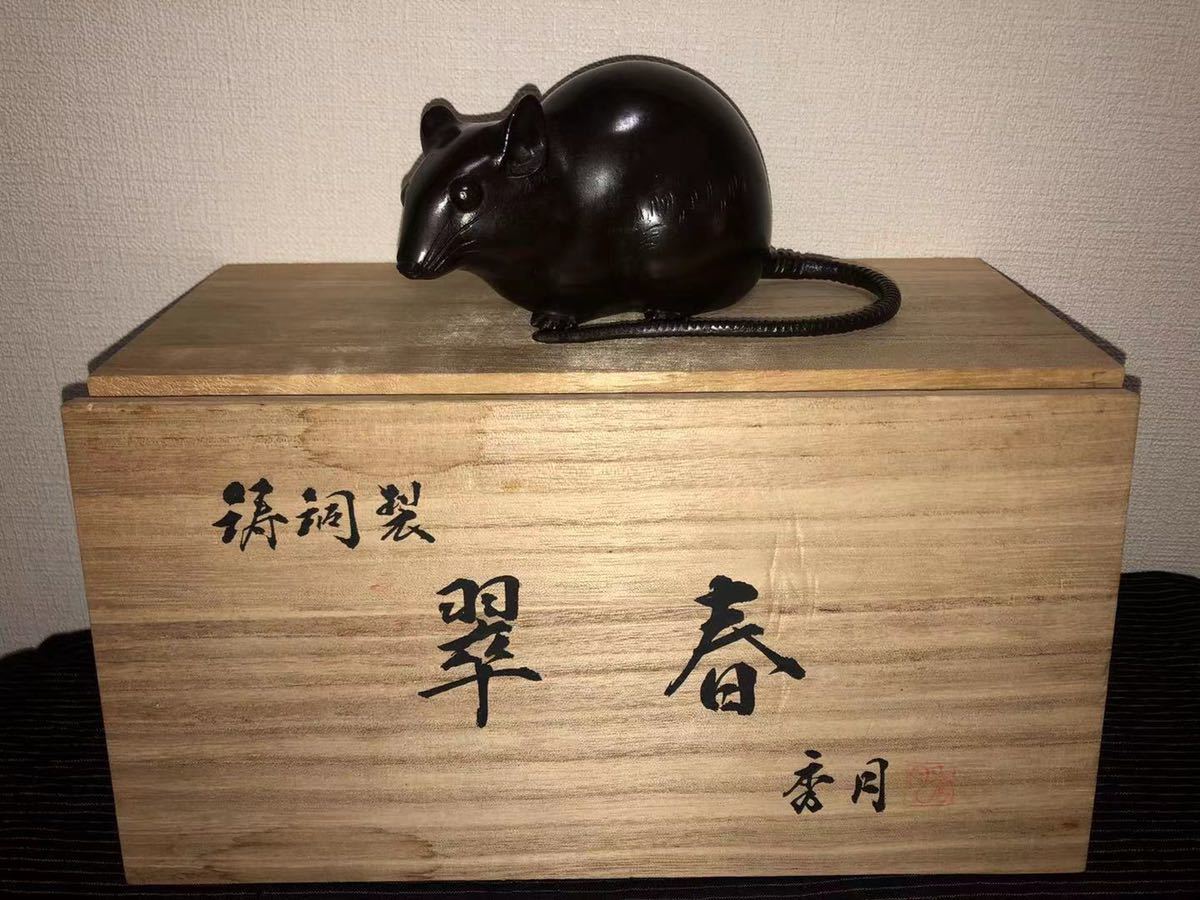 鋳銅製
翠春
秀月